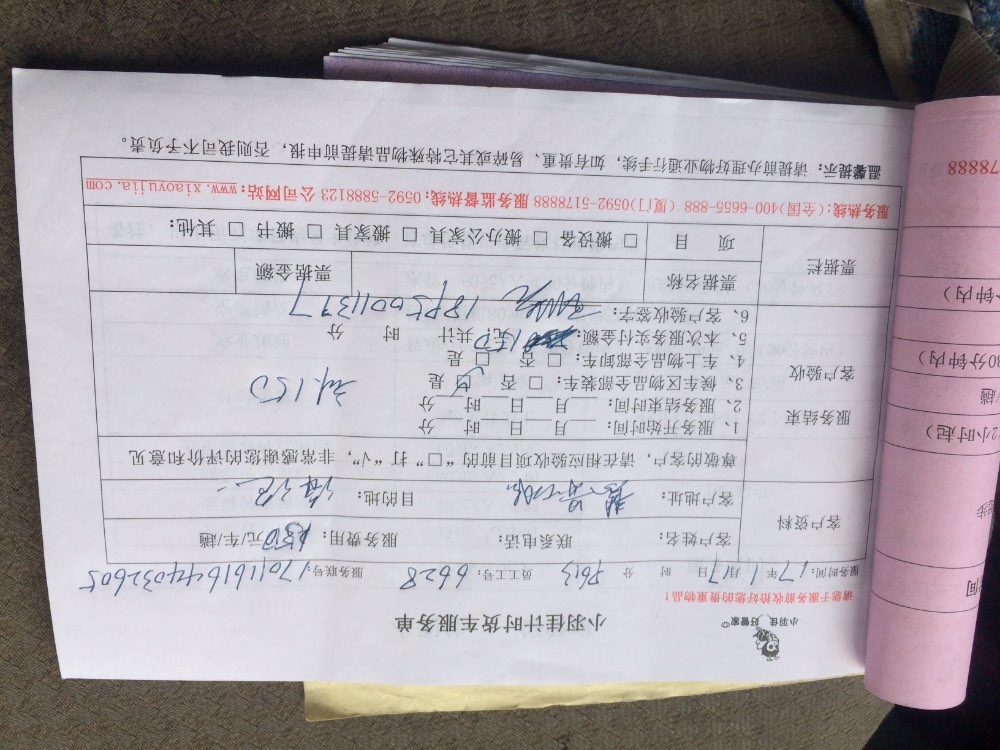 小羽佳
好管家
小羽佳计时货车服务单
请您于服务前收拾好您的贵重物品！
服务时间：17年1月17日 时 分 8613 员工号：6628 服务联号：1701161644032605
客户资料
客户姓名： 联系电话： 服务费用：150元/车/趟
客户地址： 目的地：
尊敬的客户，请在相应验收项目前的“□”打“√”，非常感谢您的评价和意见
服务结束
客户验收
1、服务开始时间： 月 日 时 分
2、服务结束时间： 月 日 时 分
3、候车区物品全部装车：□ 否 □ 是
4、车上物品全部卸车：□ 否 □ 是
5、本次服务实付金额：150元；共计 时 分
6、客户验收签字：
150
票据栏
票据名称 票据金额
项 目 □ 搬设备 □ 搬办公家具 □ 搬家具 □ 搬书 □ 其他：
服务热线：(全国)400-6655-888 (厦门)0592-5178888 服务监督热线：0592-5888123 公司网站：www.xiaoyujia.com
温馨提示：请提前办理好物业通行手续，如有贵重、易碎或其它特殊物品请提前申报，否则我司不予负责。
78888
钟内）
30分钟内）
/趟
2小时起）
步
间